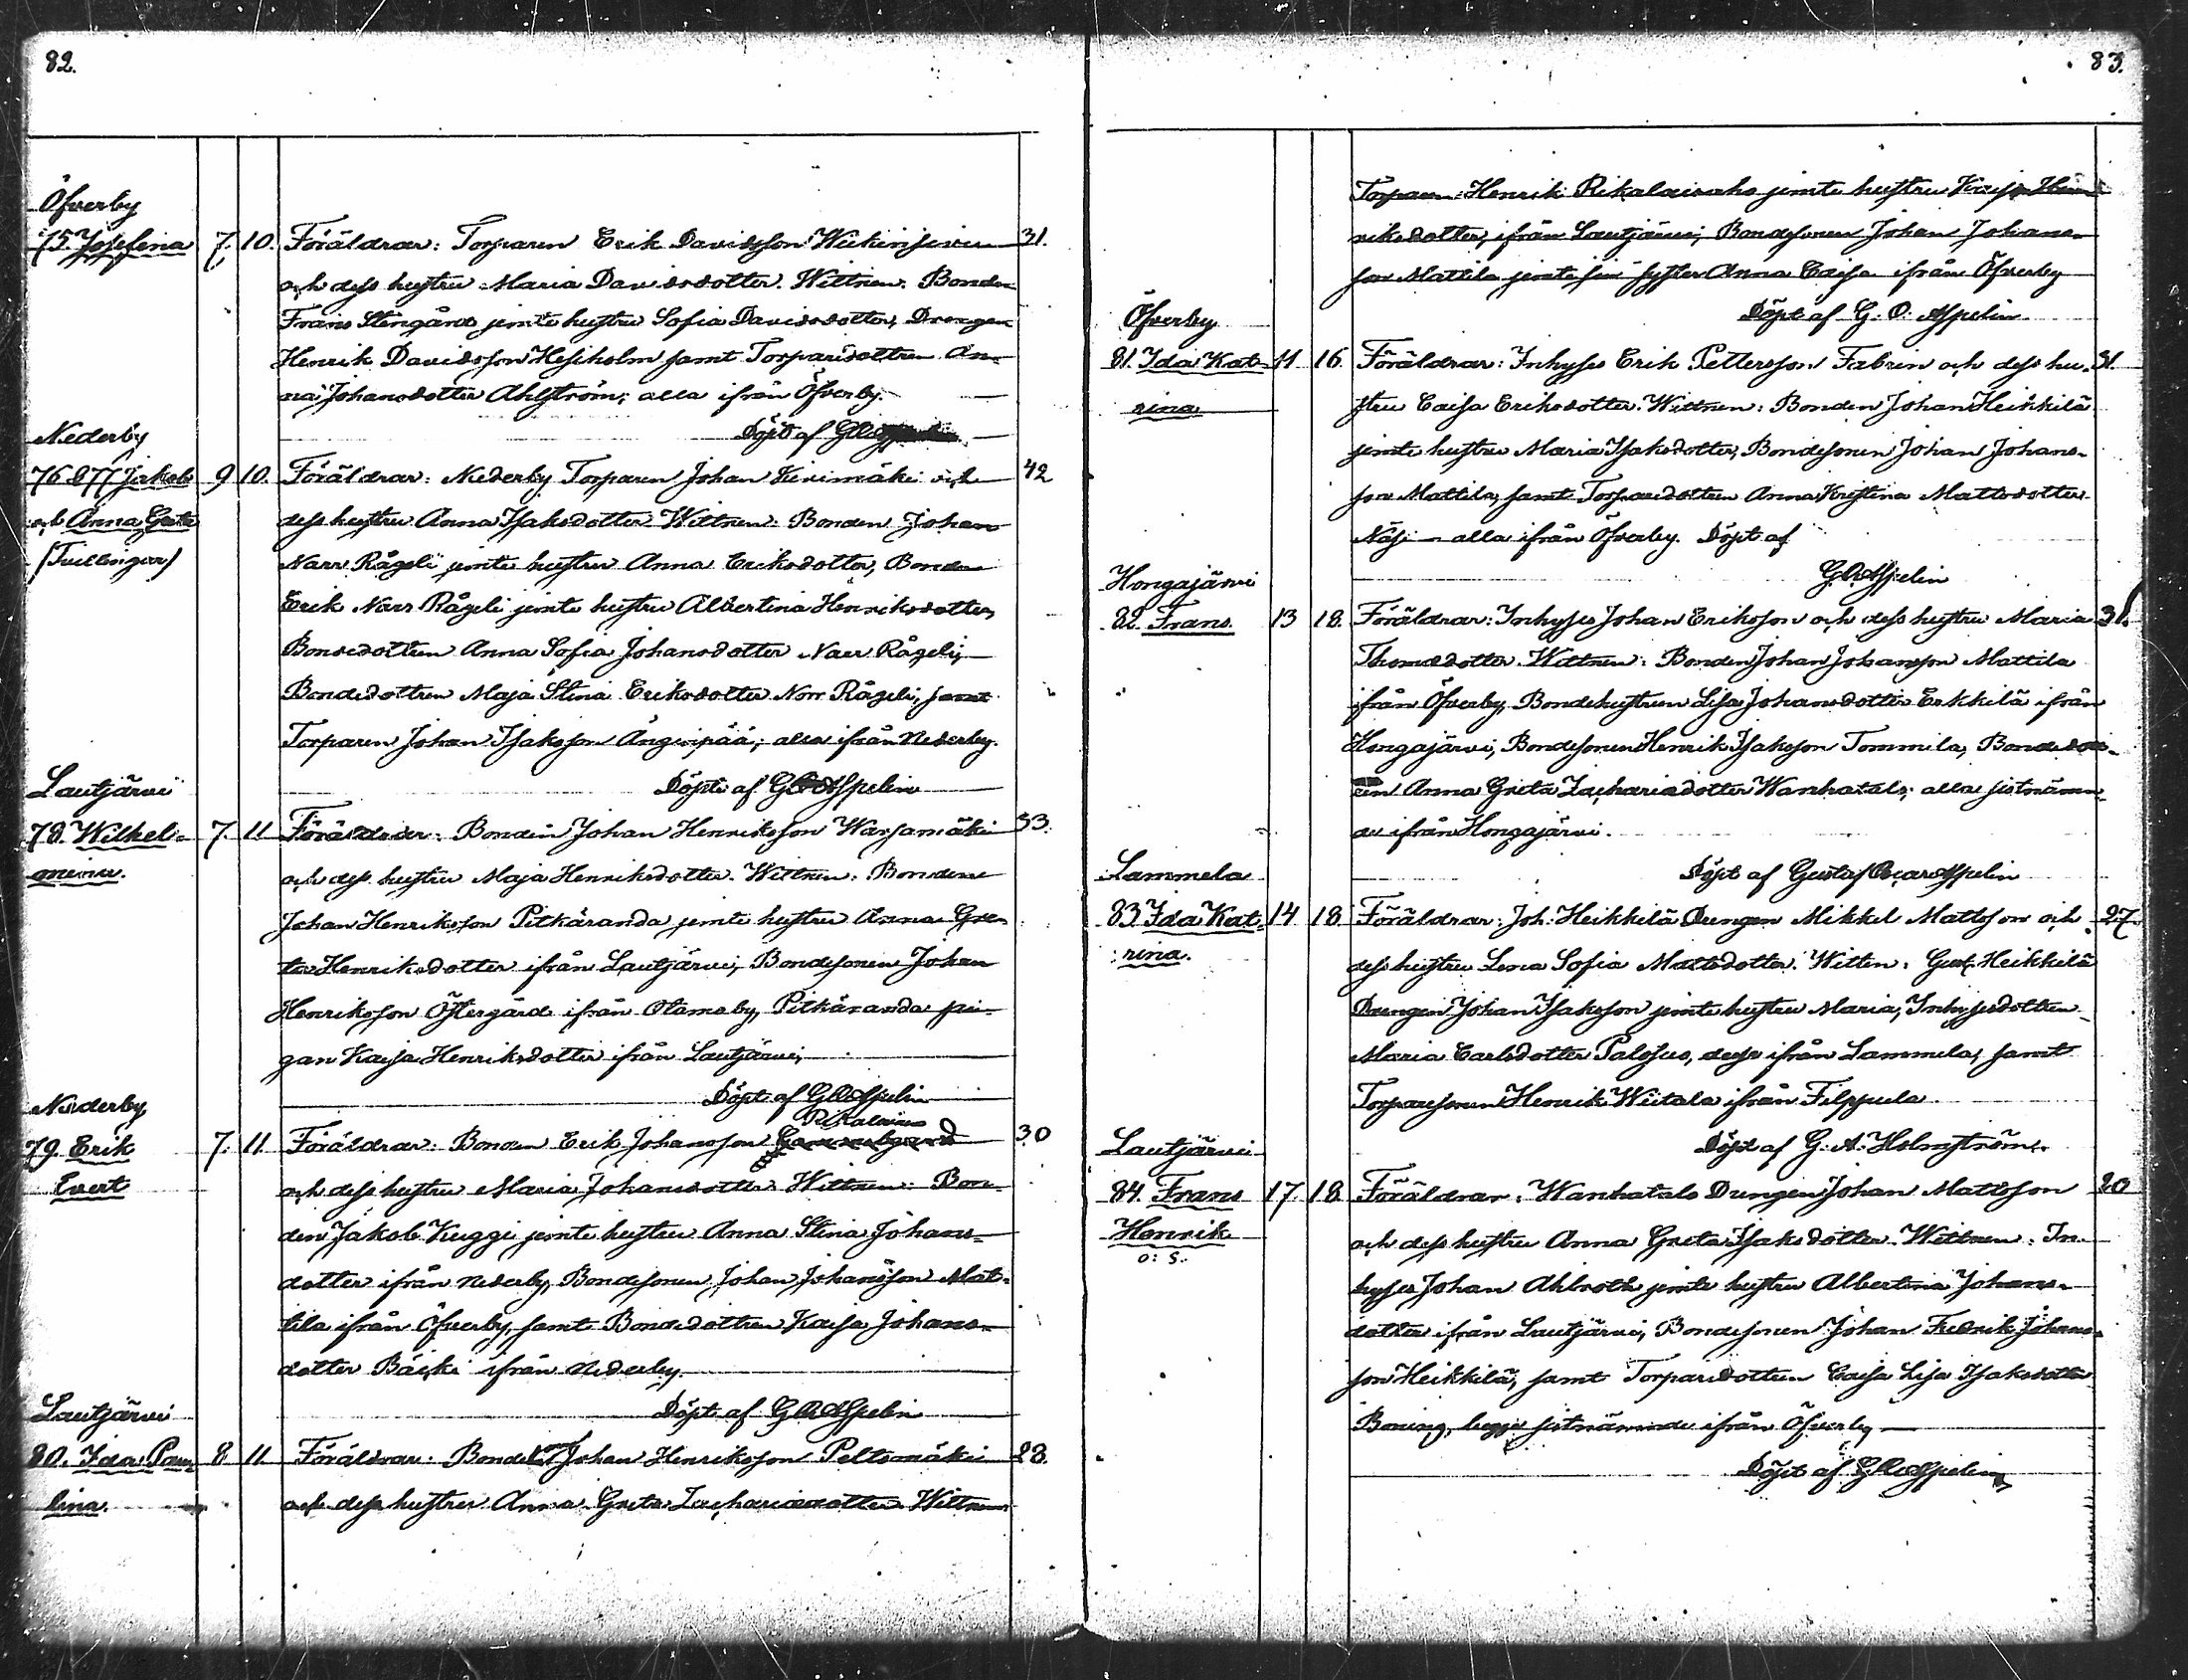 82.
Öfverby
75. Josefina 7. 10. Föräldrar: Torparen Erik Davidsson 31.
och dess hustru Maria Davidsdotter. Wittnen: Bonden
Frans Stengård jemte hustru Sofia Davidsdotter, Drengen
Henrik Davidsson Hesiholm samt Torparedottren An-
na Johansdotter Ahlström; alla ifrån Öfverby.
Döpt af
Nederby
76 & 77 Jakob 9 10. Föräldrar: Nederby Torparen Johan Kivimäki och 42
och Anna Greta dess hustru Anna Isaksdotter Wittnen: Bonden Johan
(Tvillingar) Narr Rågeli jemte hustru Anna Eriksdotter, Bonden
Erik Narr Rågeli jemte hustru Albertina Henriksdotter,
Bondedottren Anna Sofia Johansdotter Narr Rågeli,
Bondedottren Maja Stina Eriksdotter Norr Rågeli, samt
Torparen Johan Isaksson Ängespää; alla ifrån Nederby.
Döpte af G O Aspelin
Lautjärvi
78. Wilhel- 7. 11 Föräldrar: Bonden Johan Henriksson Warsamäki 33.
mina. och dess hustru Maja Henriksdotter. Wittnen: Bonden
Johan Henriksson Pitkäranda jemte hustru Anna Gre-
ta Henriksdotter ifrån Lautjärvi, Bondesonen Johan
Henriksson Östergård ifrån Olamaby, Pitkäranda pi-
gan Kaisa Henriksdotter ifrån Lautjärvi,
Döpt af G O Aspelin
Nederby
79. Erik 7. 11. Föräldrar: Bonden Erik Johansson Gammelgård 30
Evert och dess hustru Maria Johansdotter Wittnen: Bon-
den Jakob Kuggi jemte hustru Anna Stina Johans-
dotter ifrån Nederby, Bondesonen Johan Johansson Mat-
tila ifrån Öfverby, samt Bondedottren Kaisa Johans-
dotter Bäcki ifrån Nederby.
Döpt af G O Aspelin
Lautjärvi
80. Ida Pau- 8 11 Föräldrar: Bondesonen Johan Henriksson Peltomäki 28.
lina. och dess hustru Anna Greta Zachariadotter Wittnen:
83.
Torparen Henrik jemte hustru Kaisa Hen-
riksdotter, ifrån Lautjärvi, Bondesonen Johan Johans-
son Mattila jemte sin syster Anna Caisa ifrån Öfverby
Döpt af G. O. Aspelin.
Öfverby
81. Ida Kat- 11 16. Föräldrar: Inhyses Erik Pettersson Fabrin och dess hu- 31.
rina stru Caisa Eriksdotter. Wittnen: Bonden Johan Heikkilä
jemte hustru Maria Isaksdotter, Bondesonen Johan Johans-
son Mattila, samt Torparedottren Anna Kristina Mattsdotter
Näsi alla ifrån Öfverby. Döpt af
G O Aspelin
Hongajärvi
82. Frans. 13 18. Föräldrar: Inhyses Johan Eriksson och dess hustru Maria 31.
Thomasdotter. Wittnen: Bonden Johan Johansson Mattila
ifrån Öfverby, Bondehustrun Lisa Johansdotter Erkkilä ifrån
Hongajärvi, Bondesonen Henrik Isaksson Tommila, Bondedott-
ren Anna Greta Zachariadotter Wanhatalo; alla sistnämn-
de ifrån Hongajärvi.
Döpt af Gustaf Oscar Aspelin
Lammela
83 Ida Kat- 14 18. Föräldrar: Joh. Heikkilä Drengen Mikkel Mattsson och 27.
rina. dess hustru Lena Sofia Mattsdotter. Wittnen: Gust. Heikkilä
Drengen Johan Isaksson jemte hustru Maria, Inhysesdottren
Maria Carlsdotter Palosus, desse ifrån Lammela, samt
Torparesonen Henrik Wiitala ifrån Filppula.
Döpt af G. A. Holmström.
Lautjärvi
84. Frans 17. 18. Föräldrar: Wanhatalo Drengen Johan Mattsson 20
Henrik och dess hustru Anna Greta Isaksdotter. Wittnen: In-
o: s. hyses Johan Ahlroth jemte hustru Albertina Johans-
dotter ifrån Lautjärvi, Bondesonen Johan Fredrik Johans-
son Heikkilä, samt Torparedottren Caisa Lisa Isaksdotter
Boning, begge sistnämnde ifrån Öfverby
Döpt af G O Aspelin